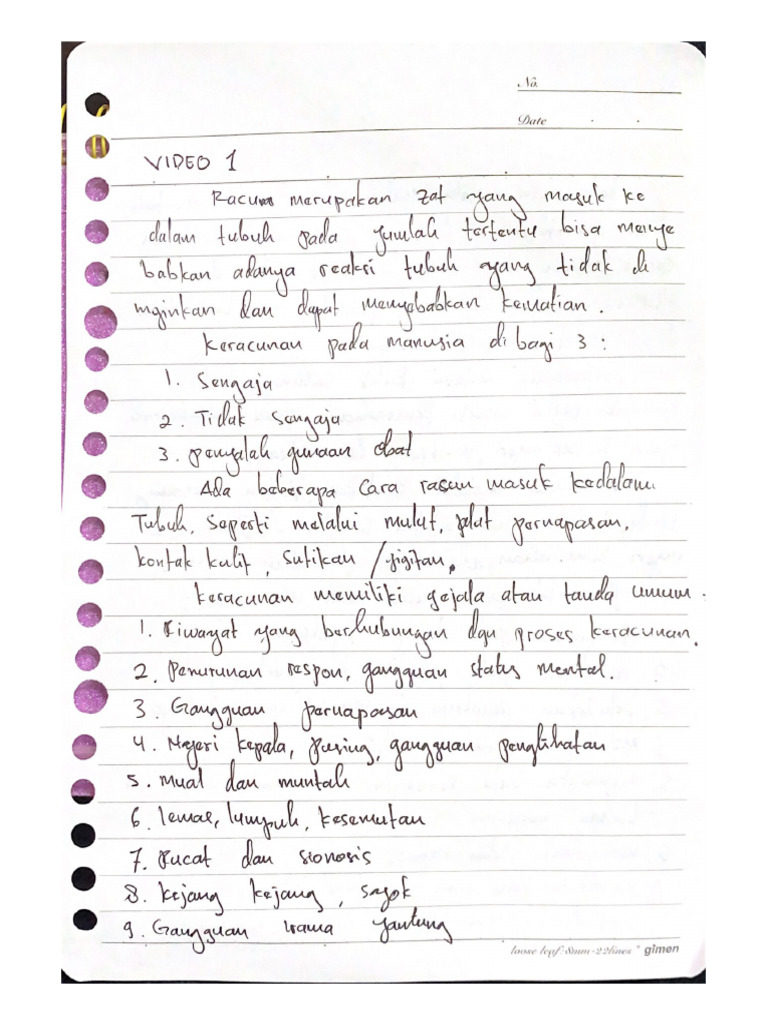 No.
Date
VIDEO 1
Racun merupakan zat yang masuk ke
dalam tubuh pada jumlah tertentu bisa menye
babkan adanya reaksi tubuh yang tidak di
inginkan dan dapat menyebabkan kematian.
Keracunan pada manusia di bagi 3 :
1. Sengaja
2. Tidak sengaja
3. penyalah gunaan obat
Ada beberapa cara racun masuk kedalam
Tubuh, seperti melalui mulut, pernapasan,
kontak kulit, suntikan / gigitan,
keracunan memiliki gejala atau tanda umum.
1. Riwayat yang berhubungan dgn proses keracunan.
2. Penurunan respon, gangguan status mental.
3. Gangguan pernapasan
4. Nyeri kepala, pusing, gangguan penglihatan
5. Mual dan muntah
6. lemas, lumpuh, kesemutan
7. Pucat dan sionosis
8. Kejang kejang, syok
9. Gangguan irama jantung
loose leaf:8mm-22lines * gimen